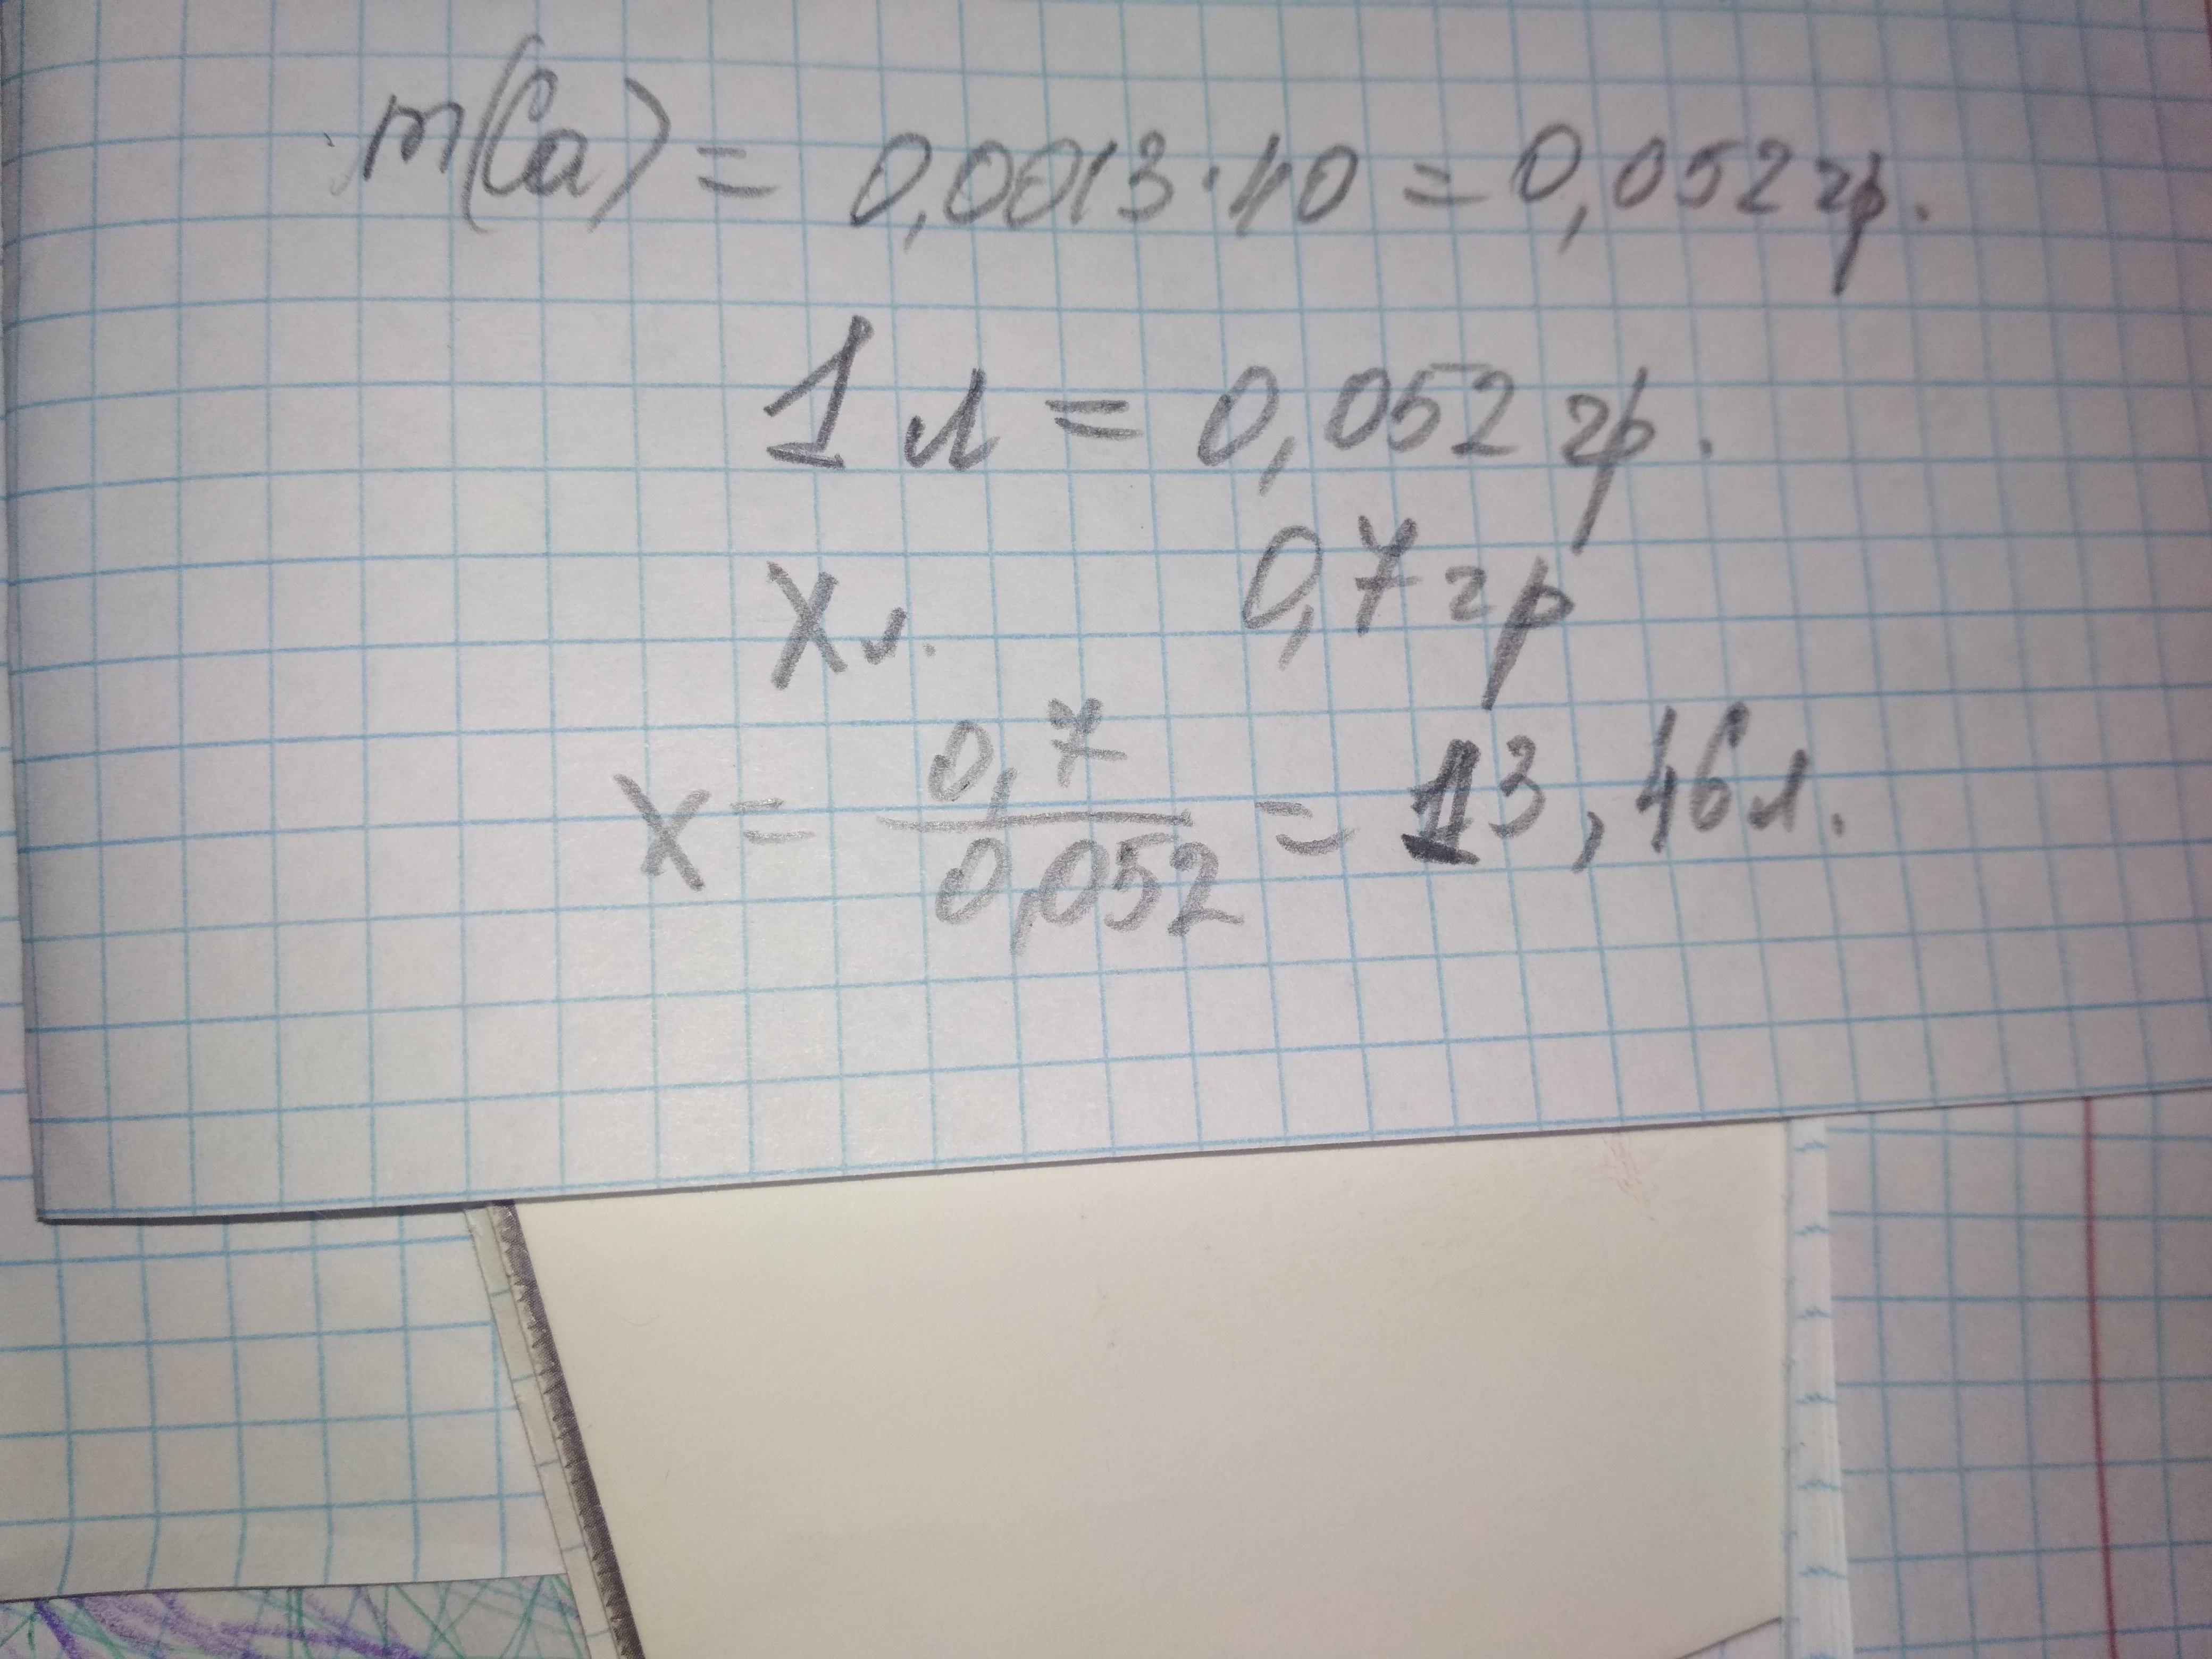 m(Ca) = 0,0013·40 = 0,052 гр.
1 л = 0,052 гр.
X л. 0,7 гр
X = 0,7/0,052 = 13,46 л.